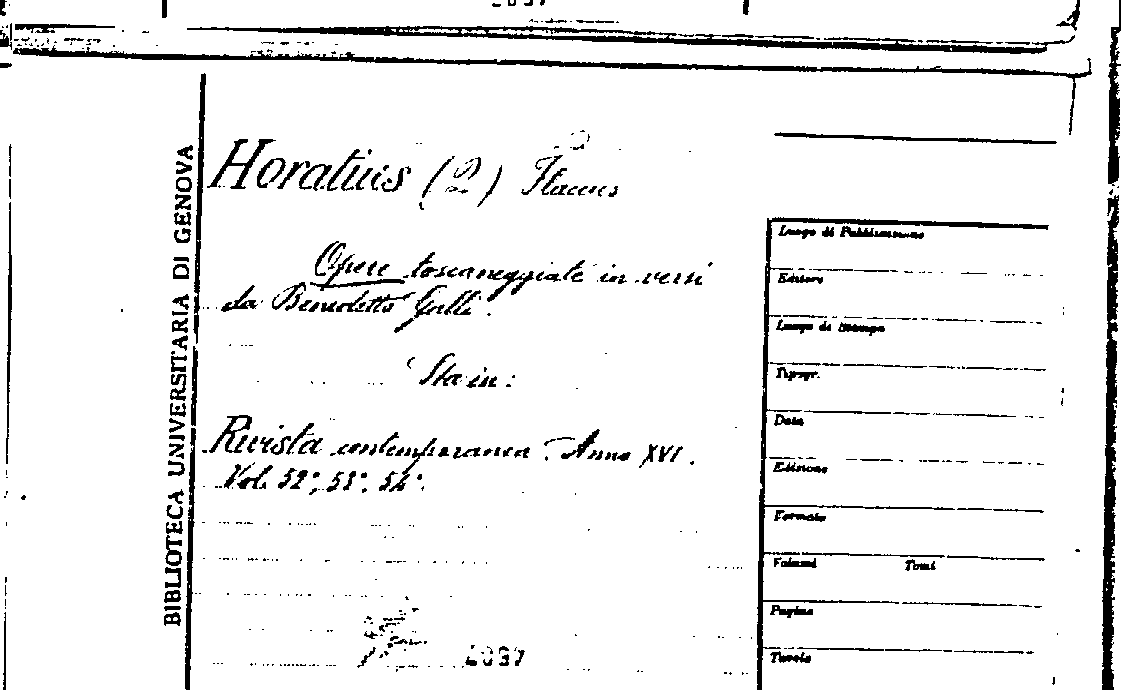 BIBLIOTECA UNIVERSITARIA DI GENOVA
Horatius (2) Flaccus
Opere toscaneggiate in versi
da Benedetto Galli.
Sta in:
Rivista contemporanea. Anno XVI.
Vol. 52°, 53°. 54°.
Luogo di Pubblicazione
Editore
Luogo di Stampa
Tipogr.
Data
Edizione
Formato
Volumi Tomi
Pagine
Tavole